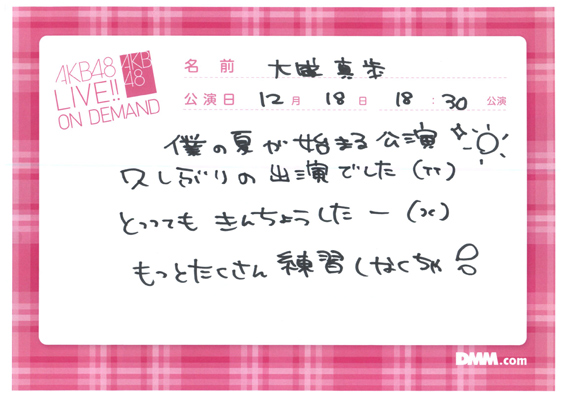 AKB48
LIVE!!
ON DEMAND
AKB
48
名前 大盛真歩
公演日 12月 18日 18:30 公演
僕の夏が始まる公演
久しぶりの出演でした(TT)
とっっても きんちょうしたー (><)
もっとたくさん 練習しなくちゃ!!
DMM.com